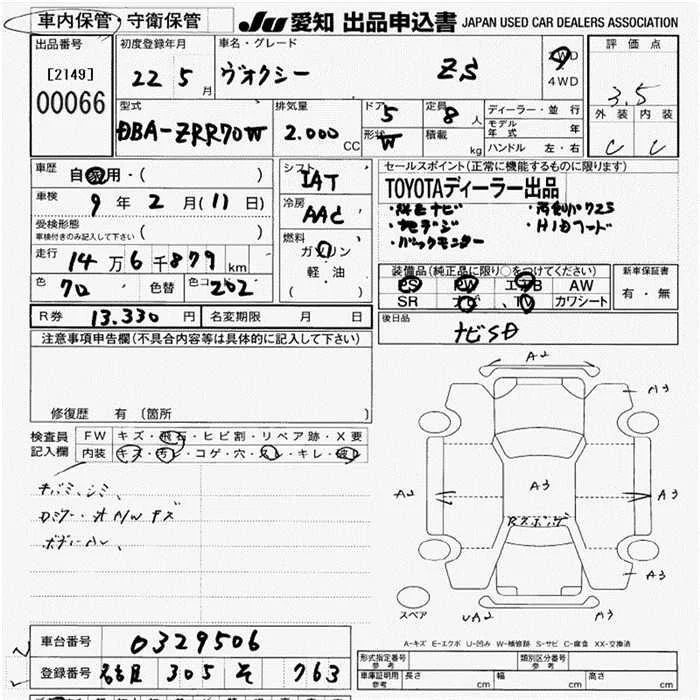 車内保管・守衛保管 JU 愛知 出品申込書 JAPAN USED CAR DEALERS ASSOCIATION
出品番号 初度登録年月 車名・グレード 評価点
[2149] 22 5 月 ヴォクシー ZS 2WD 4WD 3.5
00066 外装 内装
型式 排気量 ドア 5 定員 8 人 ディーラー・並行
DBA-ZRR70W 2.000 CC 形状 W 積載 kg モデル年式 年
ハンドル 左・右 C C
車歴 自家用・( ) シフト IAT セールスポイント(正常に機能するものに限ります)
車検 9 年 2 月 (11 日) 冷房 AAC TOYOTAディーラー出品
・純正ナビ ・両側パワスラ
受検形態 ( ) ・地デジ ・HIDフード
車検付きのみ記入して下さい 燃料 ・バックモニター
走行 14 万 6 千 879 km ガソリン
軽・油
( )
色 70 色替 色コード 202
装備品(純正品に限り○をつけてください) 新車保証書
PS PW エアB AW 有・無
SR ナビ TV カワシート
R券 13.330 円 名変期限 月 日 後日品
ナビSD
注意事項申告欄(不具合内容等は具体的に記入して下さい)
修復歴 有 (箇所 )
検査員 FW キズ・飛石・ヒビ割・リペア跡・X要
記入欄 内装 キズ・汚レ・コゲ・穴・スレ・キレ・破レ
A2
A3
A2 A3 A3
A3
スペア UA2 A3
A-キズ E-エクボ U-凹み W-補修跡 S-サビ C-腐食 XX-交換済
車台番号 0329506
登録番号 名古屋 305 そ 763
形式指定番号 参考 類別区分番号 参考
車庫証明用 参考 長さ cm 幅 cm 高さ cm